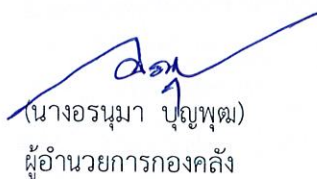 (นางอรนุมา ปุญพุฒ)
ผู้อำนวยการกองคลัง